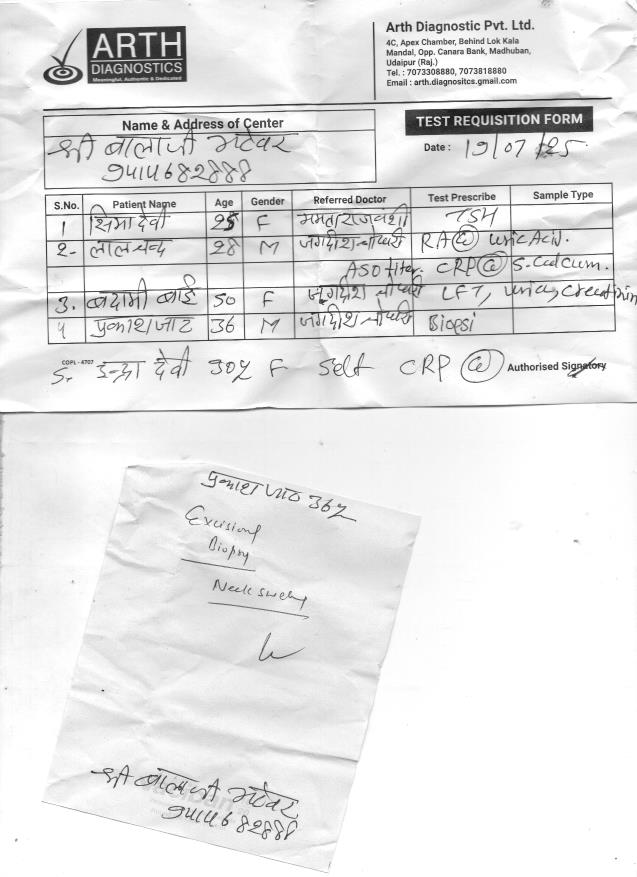 ARTH
DIAGNOSTICS
Meaningful, Authentic & Dedicated
Arth Diagnostic Pvt. Ltd.
4C, Apex Chamber, Behind Lok Kala
Mandal, Opp. Canara Bank, Madhuban,
Udaipur (Raj.)
Tel. : 7073308880, 7073818880
Email : arth.diagnositcs.gmail.com
Name & Address of Center
श्री बालाजी भटेवर
9414682888
TEST REQUISITION FORM
Date : 19/07/25
S.No. Patient Name Age Gender Referred Doctor Test Prescribe Sample Type
1 सिमा देवी 25 F ममता राजवंशी TSH
2- लालचन्द 28 M जगदीश चौधरी RA@ Uric Acid.
ASO titer. CRP@ S.Calcium.
3. बदामी बाई 50 F जगदीश चौधरी LFT, urea, Creatinin
4 प्रकाश जाट 36 M जगदीश चौधरी Biopsi
COPL - 4707
5. इन्द्रा देवी 30y F Self CRP @ Authorised Signatory
प्रकाश जाट 36y
Excisional
Biopsy
Neck swelling
श्री बालाजी भटेवर
9414682888